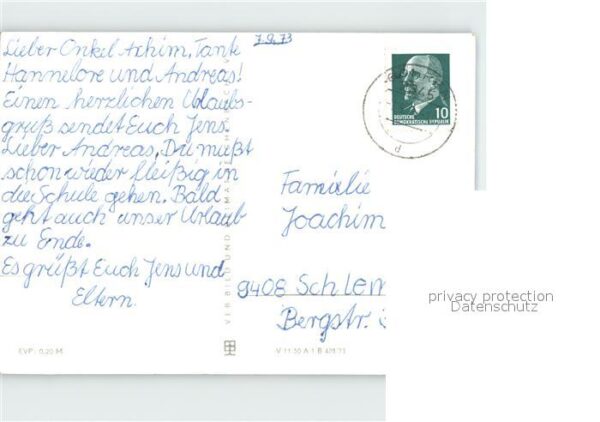 7.9.73
Lieber Onkel Achim, Tante
Hannelore und Andreas!
Einen herzlichen Urlaubs-
gruß sendet Euch Jens.
Lieber Andreas, Du mußt
schon wieder fleißig in
die Schule gehen. Bald
geht auch unser Urlaub
zu Ende.
Es grüßt Euch Jens und
Eltern.
10
DEUTSCHE
DEMOKRATISCHE REPUBLIK
Familie
Joachim
9408 Schlem
Bergstr.
privacy protection
Datenschutz
VEB BILD UND HEIMAT
EVP: 0,20 M
V 11 50 A 1 B